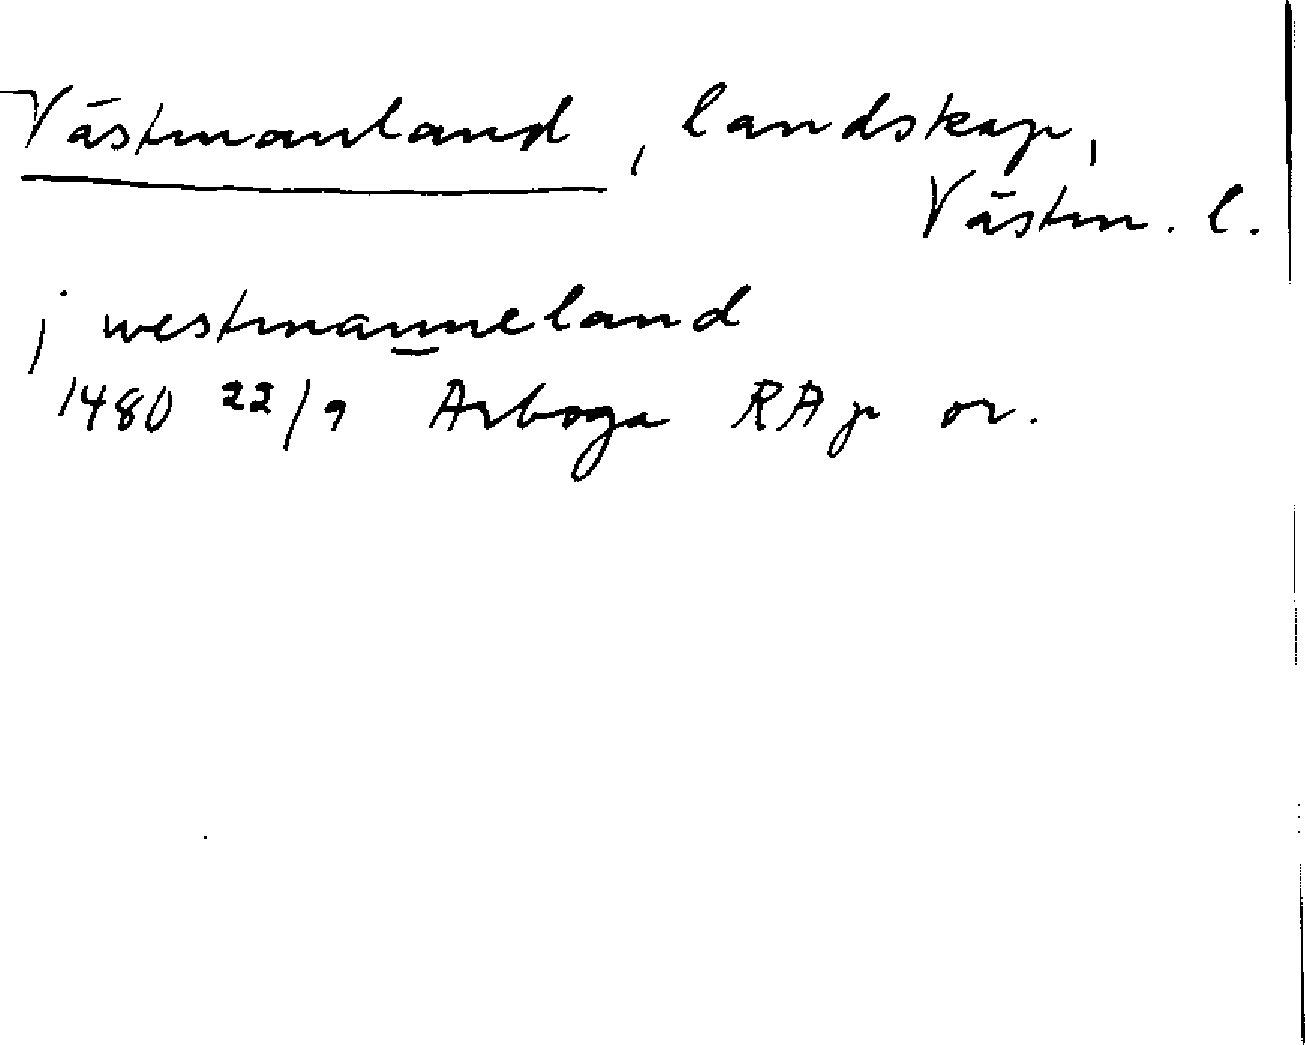 Västmanland, landskap,
Västm. l.
j westmanneland
1480 22/9 Arboga RAp or.